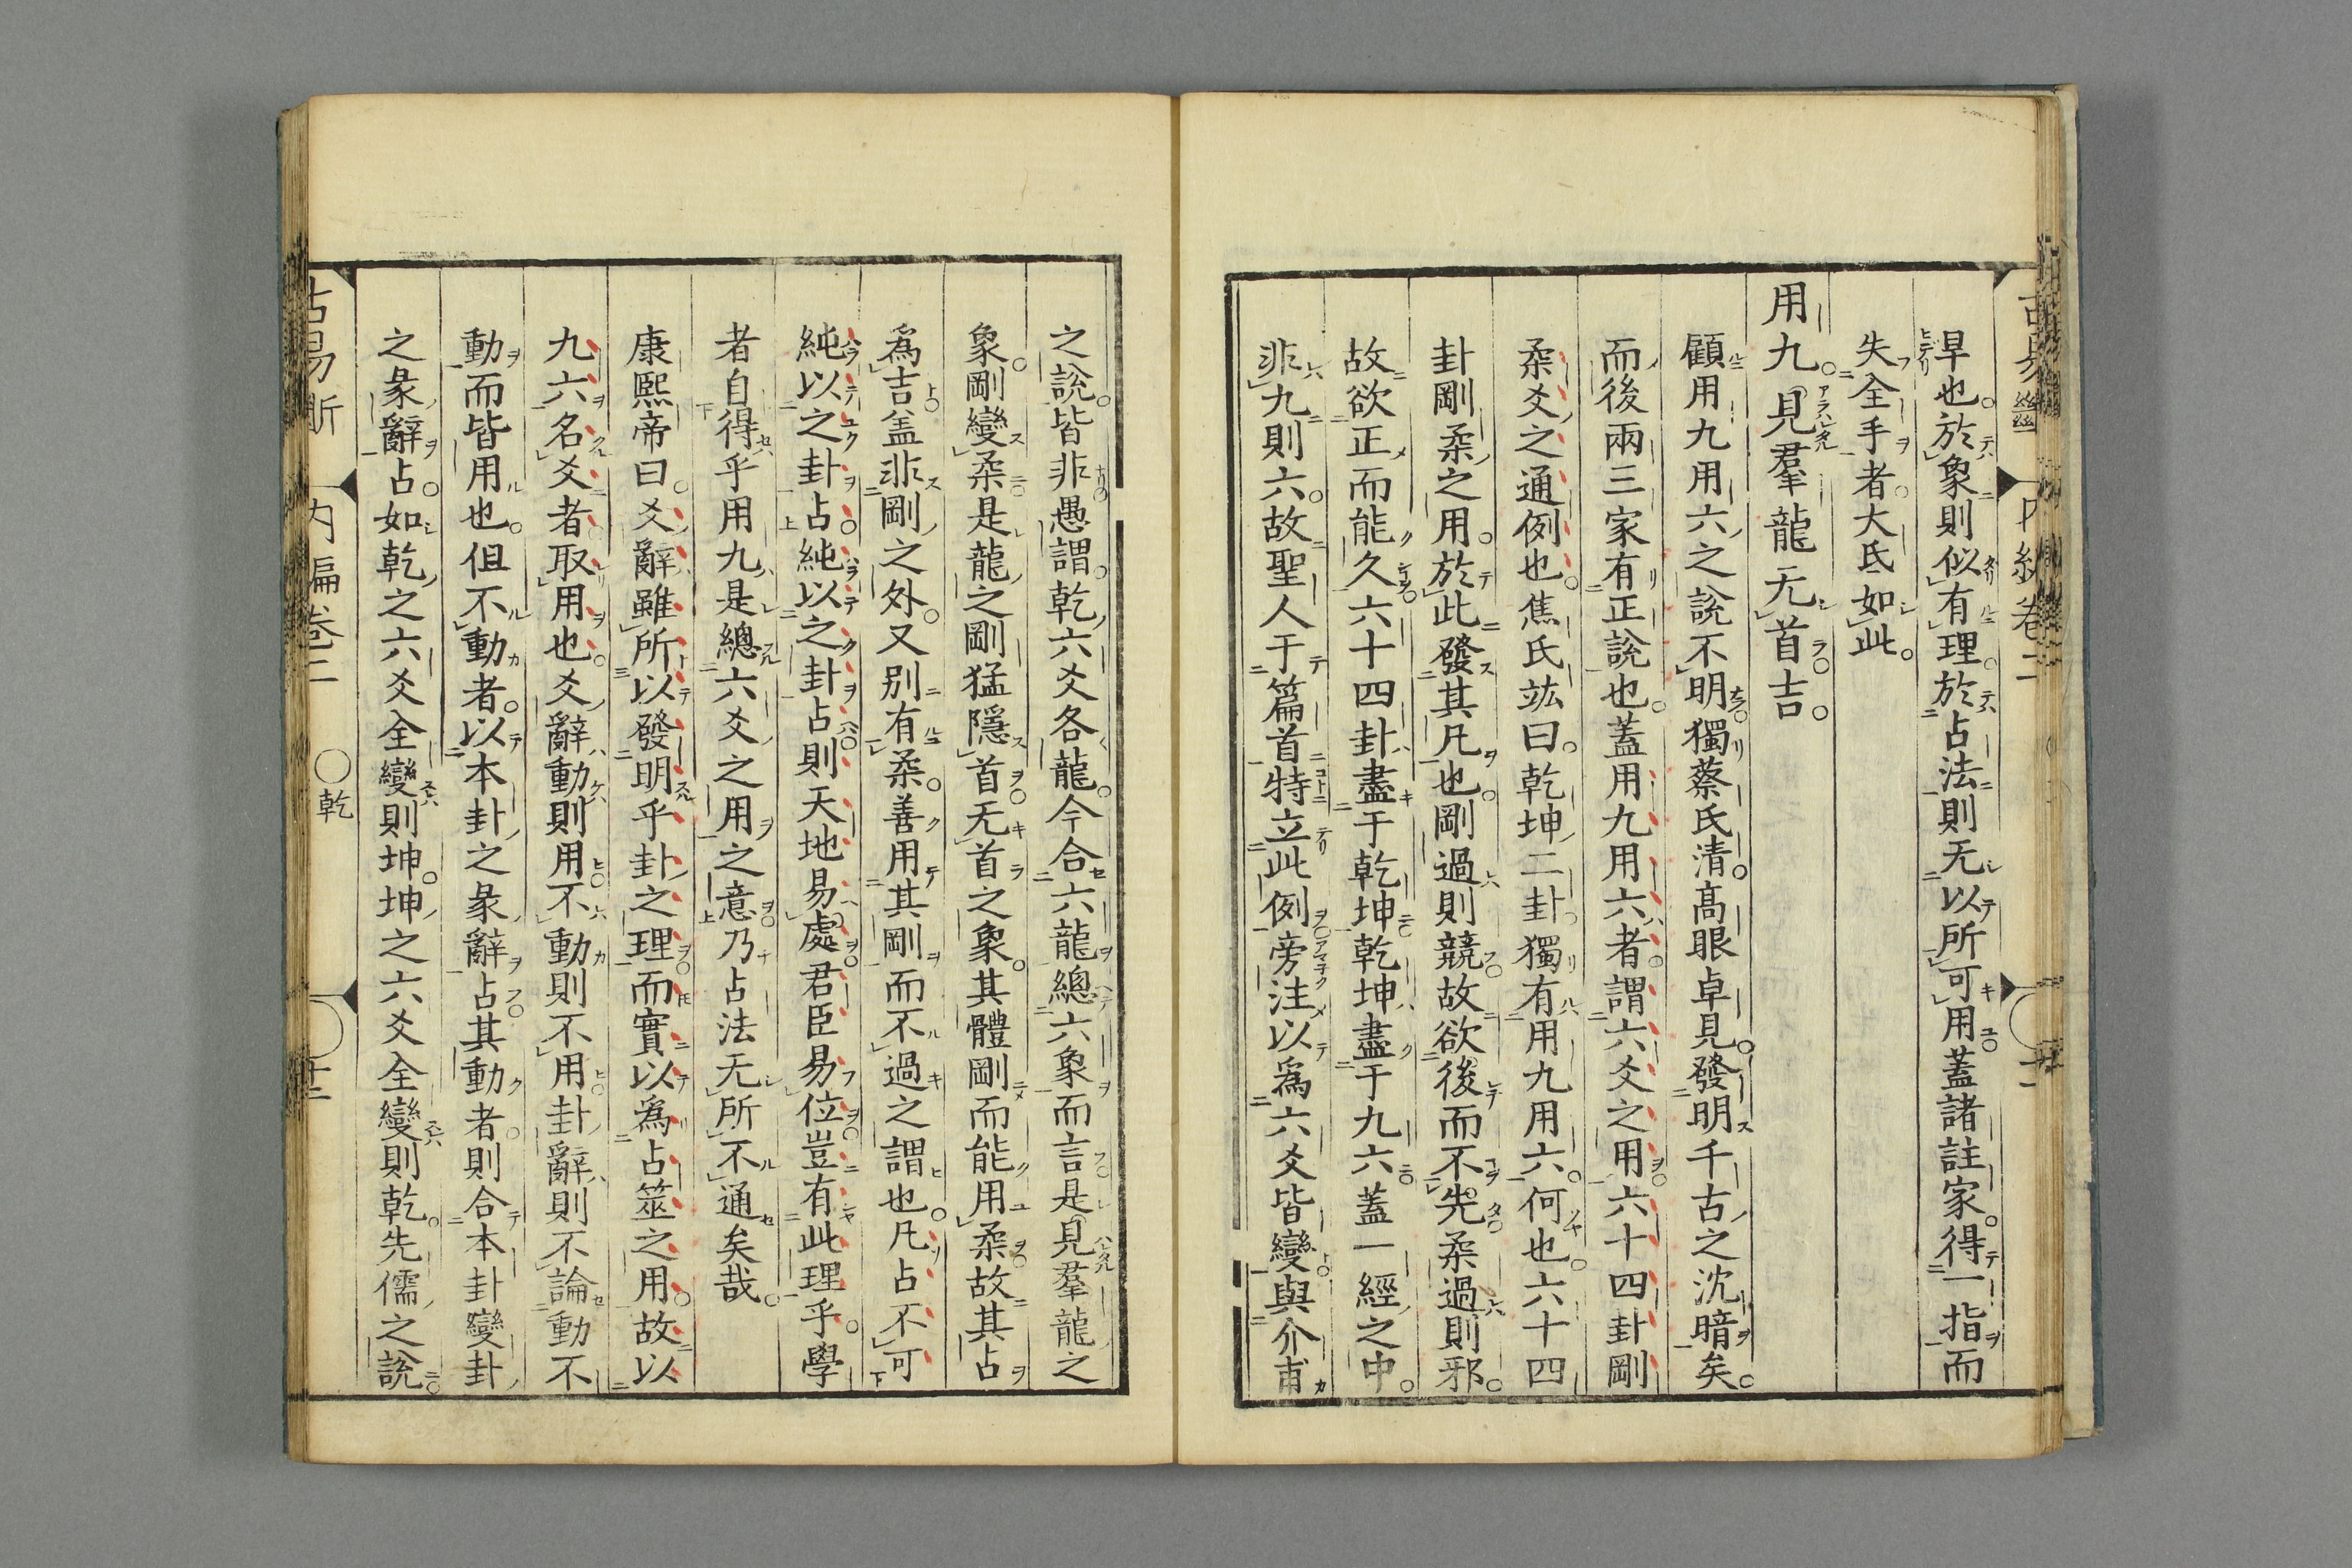 旱也於象則似有理於占法則无以所可用蓋諸註家得一指而
失全手者大氐如此
用九見羣龍无首吉
顧用九用六之說不明獨蔡氏清高眼卓見發明千古之沈暗矣
而後兩三家有正說也蓋用九用六者謂六爻之用六十四卦剛
柔爻之通例也焦氏竑曰乾坤二卦獨有用九用六何也六十四
卦剛柔之用於此發其凡也剛過則競故欲後而不先柔過則邪
故欲正而能久六十四卦盡于乾坤乾坤盡于九六蓋一經之中
非九則六故聖人于篇首特立此例旁注以爲六爻皆變與介甫
之說皆非愚謂乾六爻各龍今合六龍總六象而言是見羣龍之
象剛變柔是龍之剛猛隱首无首之象其體剛而能用柔故其占
爲吉盖非剛之外又別有柔善用其剛而不過之謂也凡占不可
純以之卦占純以之卦占則天地易處君臣易位豈有此理乎學
者自得乎用九是總六爻之用之意乃占法无所不通矣哉
康熙帝曰爻辭雖所以發明乎卦之理而實以爲占筮之用故以
九六名爻者取用也爻辭動則用不動則不用卦辭則不論動不
動而皆用也但不動者以本卦之彖辭占其動者則合本卦變卦
之彖辭占如乾之六爻全變則坤坤之六爻全變則乾先儒之說
古易斷 内編卷二 ○乾